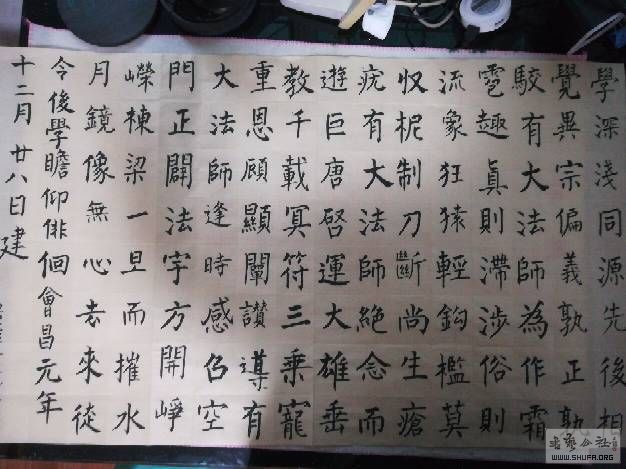 學深淺同源先後相
覺異宗偏義孰正孰
駮有大法師為作霜
雹趣真則滯涉俗則
流象狂猿輕鈎檻莫
収柅制刀斷尚生瘡
疣有大法師絶念而
遊巨唐啓運大雄垂
教千載冥符三乘寵
重恩顧顯闡讃導有
大法師逢時感召空
門正闢法宇方開崢
嶸棟梁一旦而摧水
月鏡像無心去來徒
令後學瞻仰俳佪會昌元年
十二月廿八日建
WWW.SHUFA.ORG